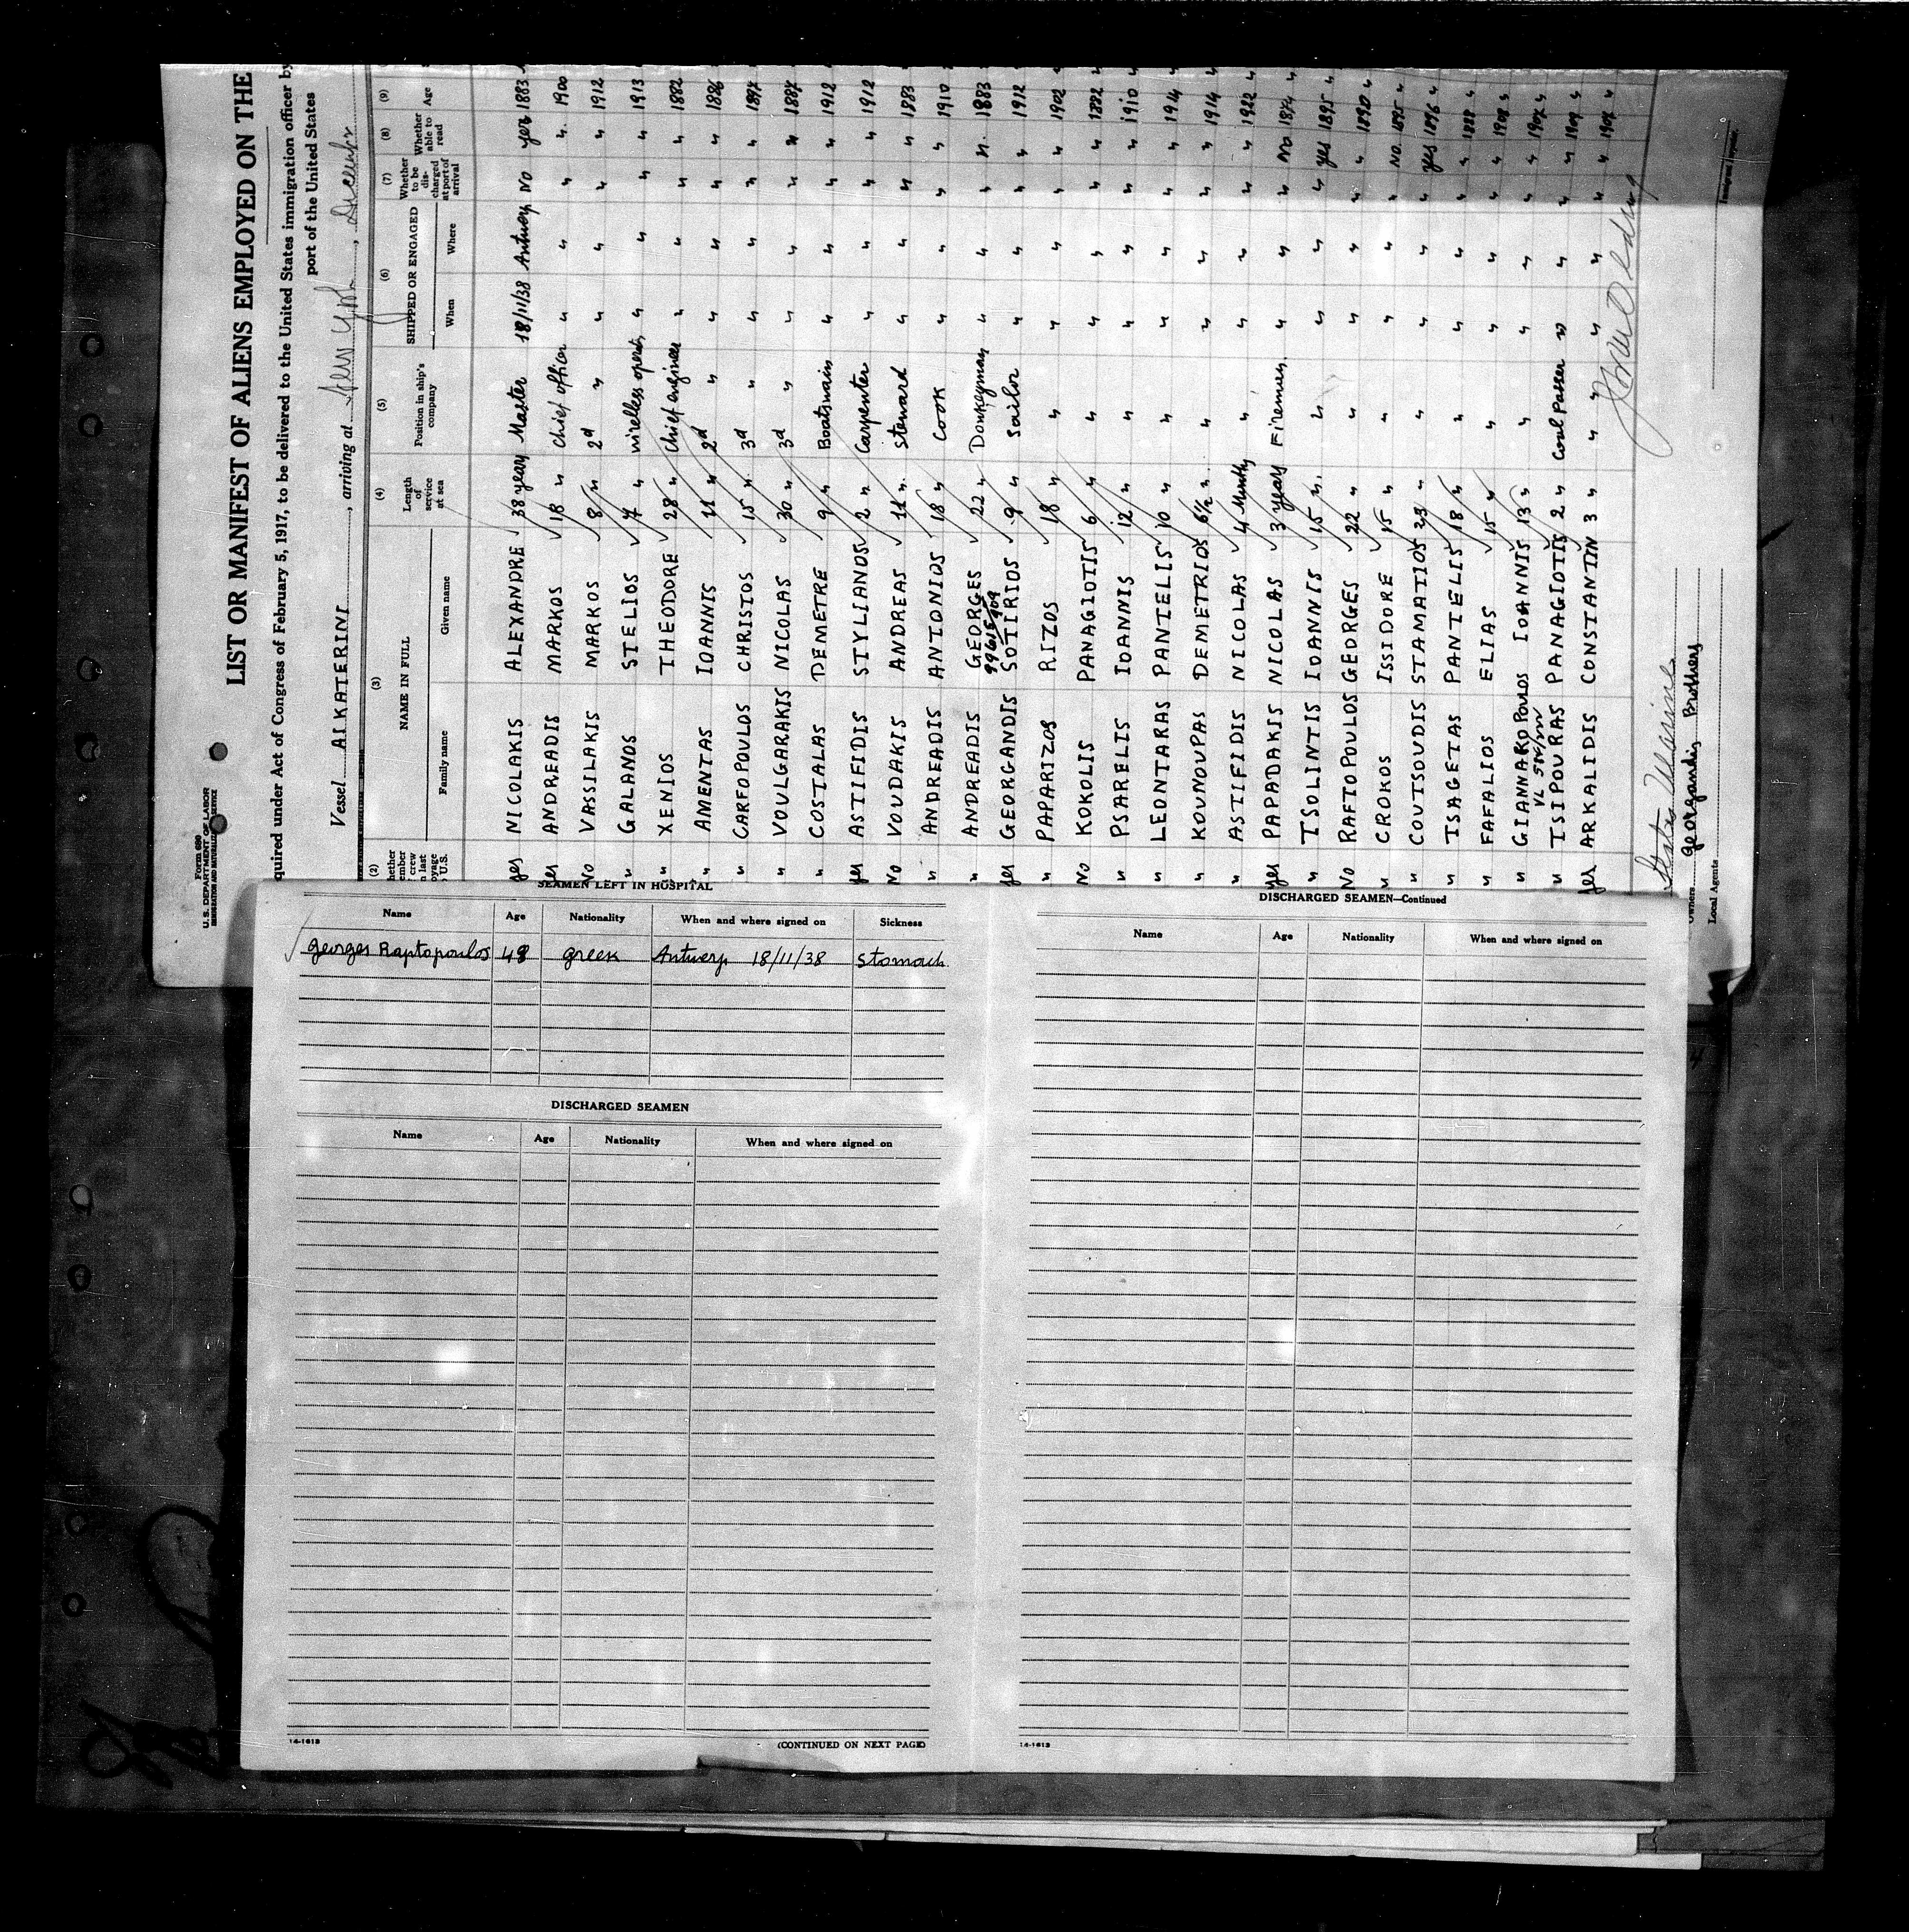 Form 680
U.S. DEPARTMENT OF LABOR
IMMIGRATION AND NATURALIZATION SERVICE
LIST OR MANIFEST OF ALIENS EMPLOYED ON THE
quired under Act of Congress of February 5, 1917, to be delivered to the United States immigration officer by
port of the United States
Vessel AIKATERINI, arriving at New York, December
(2) (3) (4) (5) (6) (7) (8) (9)
hether ember crew n last oyage U.S. NAME IN FULL Family name Given name Length of service at sea Position in ship's company SHIPPED OR ENGAGED When Where Whether to be dis-charged at port of arrival Whether able to read Age
yes NICOLAKIS ALEXANDRE 38 year Master 18/11/38 Antwerp No yes 1883
yes ANDREADIS MARKOS 18 " Chief officer " " " " 1900
No VASSILAKIS MARKOS 8 " 2d " " " " " 1912 "
" GALANOS STELIOS 4 " wireless operat. " " " " 1913 "
" XENIOS THEODORE 28 " Chief engineer " " " " 1882 "
" AMENTAS IOANNIS 11 " 2d " " " " " 1886 "
" CARFOPOULOS CHRISTOS 15 " 3d " " " " " 1897 "
" VOULGARAKIS NICOLAS 30 " 3d " " " " " 1887 "
" COSTALAS DEMETRE 9 " Boatswain " " " " 1912 "
yes ASTIFIDIS STYLIANOS 2 " Carpenter " " " " 1912 "
No VOUDAKIS ANDREAS 11 " steward " " " " 1883 "
" ANDREADIS ANTONIOS 18 " Cook " " " " 1910 "
" ANDREADIS GEORGES 22 " Donkeyman " " " " 1883 "
yes GEORGANDIS SOTIRIOS 9 " Sailor " " " " 1912 "
" PAPARIZOS RIZOS 18 " " " " " " 1902 "
No KOKOLIS PANAGIOTIS 6 " " " " " " 1892 "
" PSARELIS IOANNIS 12 " " " " " " 1910 "
" LEONTARAS PANTELIS 10 " " " " " " 1914 "
" KOUNOUPAS DEMETRIOS 6½ " " " " " " 1914 "
" ASTIFIDIS NICOLAS 4 Months " " " " " 1922 "
yes PAPADAKIS NICOLAS 3 years Firemen " " " No 1894 "
" TSOLINTIS IOANNIS 15 " " " " " yes 1895 "
No RAFTOPOULOS GEORGES 22 " " " " " " 1890 "
" CROKOS ISSIDORE 15 " " " " " No 1895 "
" COUTSOUDIS STAMATIOS 23 " " " " " yes 1896 "
" TSAGETAS PANTELIS 18 " " " " " " 1888 "
" FAFALIOS ELIAS 15 " " " " " " 1908 "
" GIANNAKOPOULOS IOANNIS 13 " " " " " " 1907 "
" TSIPOURAS PANAGIOTIS 2 " Coal Passer " " " " 1909 "
yes ARKALIDIS CONSTANTIN 3 " " " " " " 1907 "
Owners Georgandis Brothers
Local Agents
SEAMEN LEFT IN HOSPITAL
Name Age Nationality When and where signed on Sickness
Georges Raptopoulos 48 greek Antwerp 18/11/38 stomach.
DISCHARGED SEAMEN
Name Age Nationality When and where signed on
14-1613
(CONTINUED ON NEXT PAGE)
DISCHARGED SEAMEN—Continued
Name Age Nationality When and where signed on
14-1613